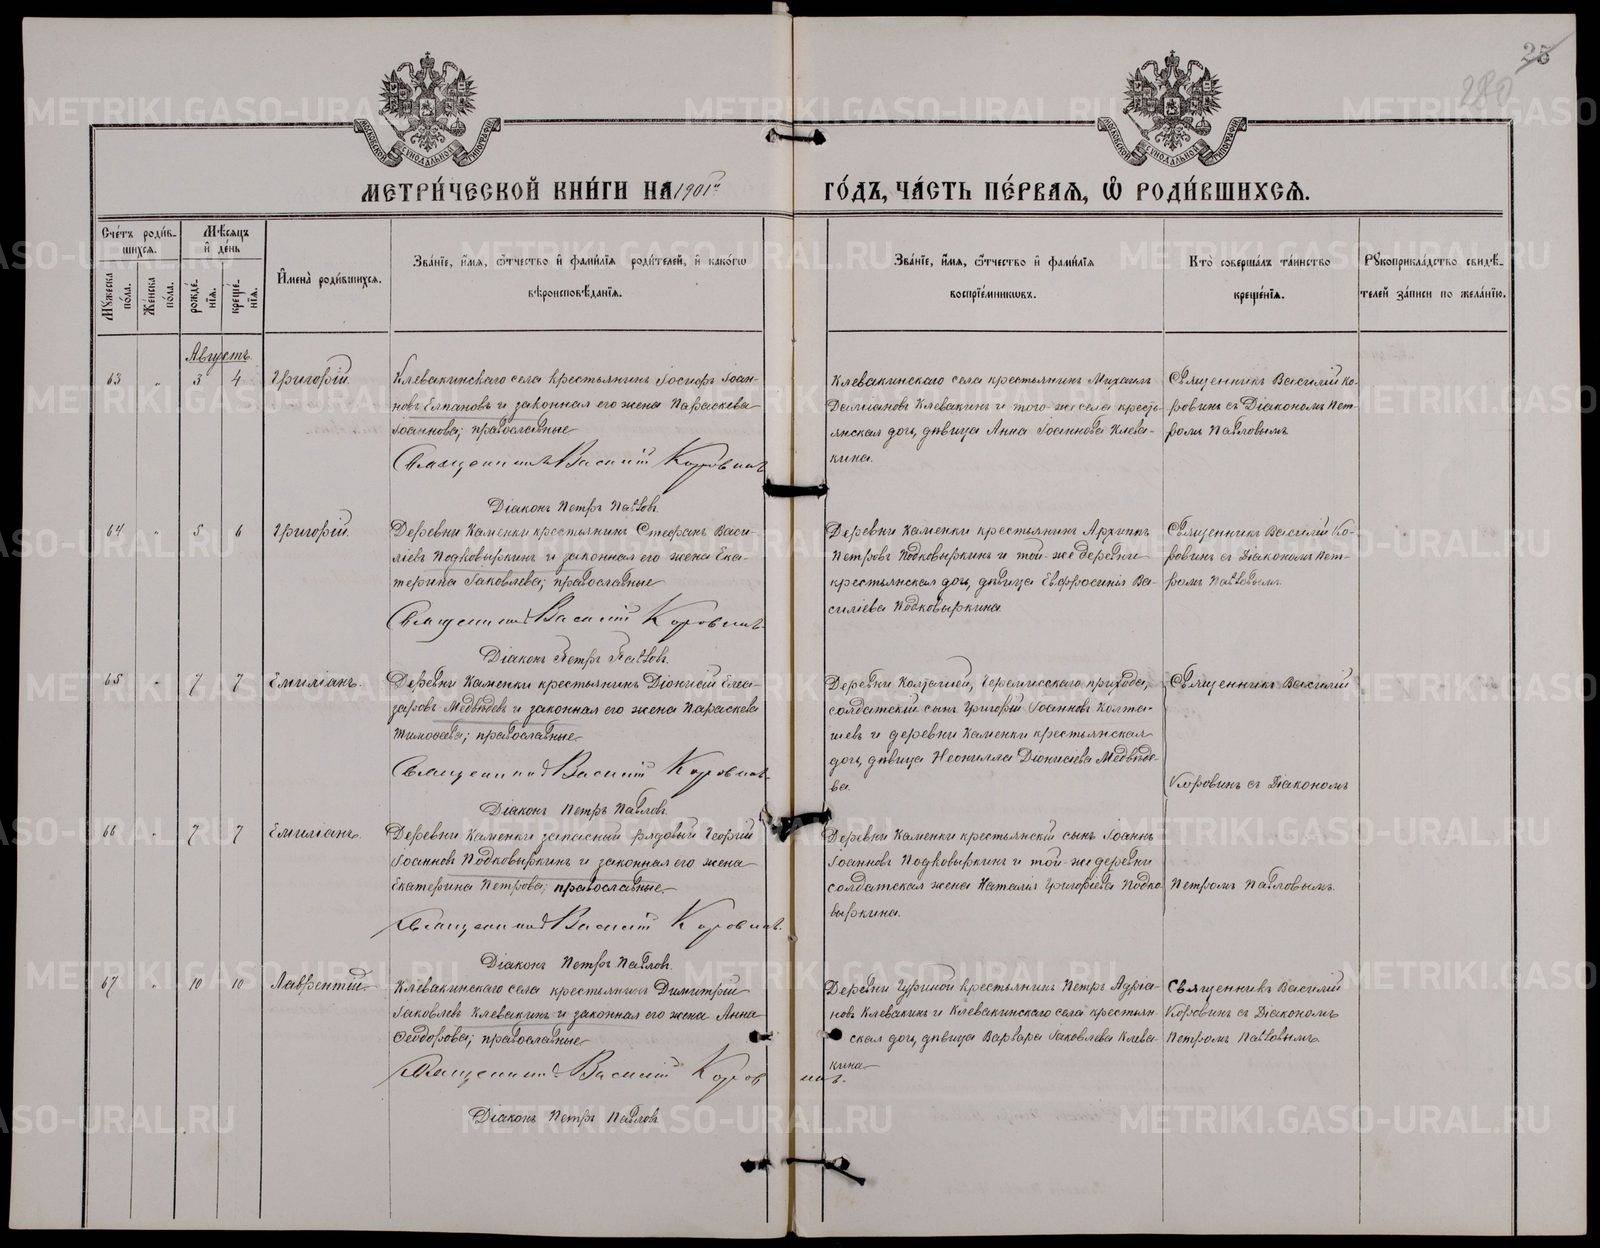 25
280
МОСКОВСКОЙ СѴНОДАЛЬНОЙ ТИПОГРАФІИ
МОСКОВСКОЙ СѴНОДАЛЬНОЙ ТИПОГРАФІИ
МЕТРИ́ЧЕСКОЙ КНИ́ГИ НА 1901й ГО́ДЪ, ЧА́СТЬ ПЕ́РВАЯ, Ѡ҆ РОДИ́ВШИХСЯ.
Сче́тъ роди́в-
шихся.
Мꙋ́жеска по́ла.
Же́нска по́ла.
Мѣ́сяцъ
и҆ де́нь
рожде́-
нїя.
креще́-
нїя.
И҆мена̀ роди́вшихся.
Зва́нїе, и҆́мя, ѻ҆́тчество и҆ фами́лїя роди́телей, и҆ како́гѡ
вѣроисповѣ́данїя.
Зва́нїе, и҆́мя, ѻ҆́тчество и҆ фами́лїя
воспрїе́мникѡвъ.
Кто̀ соверша́лъ та́инство
креще́нїя.
Рꙋкоприкла́дство свидѣ́-
телей за́писи по жела́нїю.
Августъ.
63 " 3 4 Григорій.
Клевакинскаго села крестьянинъ Іосифъ Іоан-
новъ Елпановъ и законная его жена Параскева
Іоаннова; православные
Священникъ Василій Коровинъ
Діаконъ Петръ Павловъ.
Клевакинскаго села крестьянинъ Михаилъ
Даміановъ Клевакинъ и того же села кресть-
янская дочь, дѣвица Анна Іоаннова Клева-
кина.
Священникъ Василій Ко-
ровинъ съ Діакономъ Пет-
ромъ Павловымъ
64 " 5 6 Григорій.
Деревни Каменки крестьянинъ Стефанъ Васи-
ліевъ Подковыркинъ и законная его жена Ека-
терина Іаковлева; православные
Священникъ Василій Коровинъ
Діаконъ Петръ Павловъ.
Деревни Каменки крестьянинъ Архиппъ
Петровъ Подковыркинъ и той-же деревни
крестьянская дочь, дѣвица Евфросинія Ва-
силіева Подковыркина
Священникъ Василій Ко-
ровинъ съ Діакономъ Пет-
ромъ Павловымъ
65 " 7 7 Емиліанъ.
Деревни Каменки крестьянинъ Діонисій Елеа-
заровъ Медвѣдевъ и законная его жена Параскева
Тимоѳеева; православные
Священникъ Василій Коровинъ
Діаконъ Петръ Павловъ.
Деревни Колташей, Черемисскаго прихода,
солдатскій сынъ Григорій Іоанновъ Колта-
шевъ и деревни Каменки крестьянская
дочь, дѣвица Неонилла Діонисіева Медвѣде-
ва.
Священникъ Василій
Коровинъ съ Діакономъ
66 " 7 7 Емиліанъ.
Деревни Каменки запасный рядовый Георгій
Іоанновъ Подковыркинъ и законная его жена
Екатерина Петрова; православные
Священникъ Василій Коровинъ.
Діаконъ Петръ Павловъ.
Деревни Каменки крестьянскій сынъ Іоаннъ
Іоанновъ Подковыркинъ и той-же деревни
солдатская жена Наталія Григоріева Подко
выркина.
Петромъ Павловымъ.
67 " 10 10 Лаврентій.
Клевакинскаго села крестьянинъ Димитрій
Іаковлевъ Клевакинъ и законная его жена Анна
Ѳеодорова; православные
Священникъ Василій Коровинъ.
Діаконъ Петръ Павловъ
Деревни Гуриной крестьянинъ Петръ Адріа-
новъ Клевакинъ и Клевакинскаго села крестьян-
ская дочь, дѣвица Варвара Іаковлева Клева-
кина
Священникъ Василій
Коровинъ съ Діакономъ
Петромъ Павловымъ.
METRIKI.GASO-URAL.RU